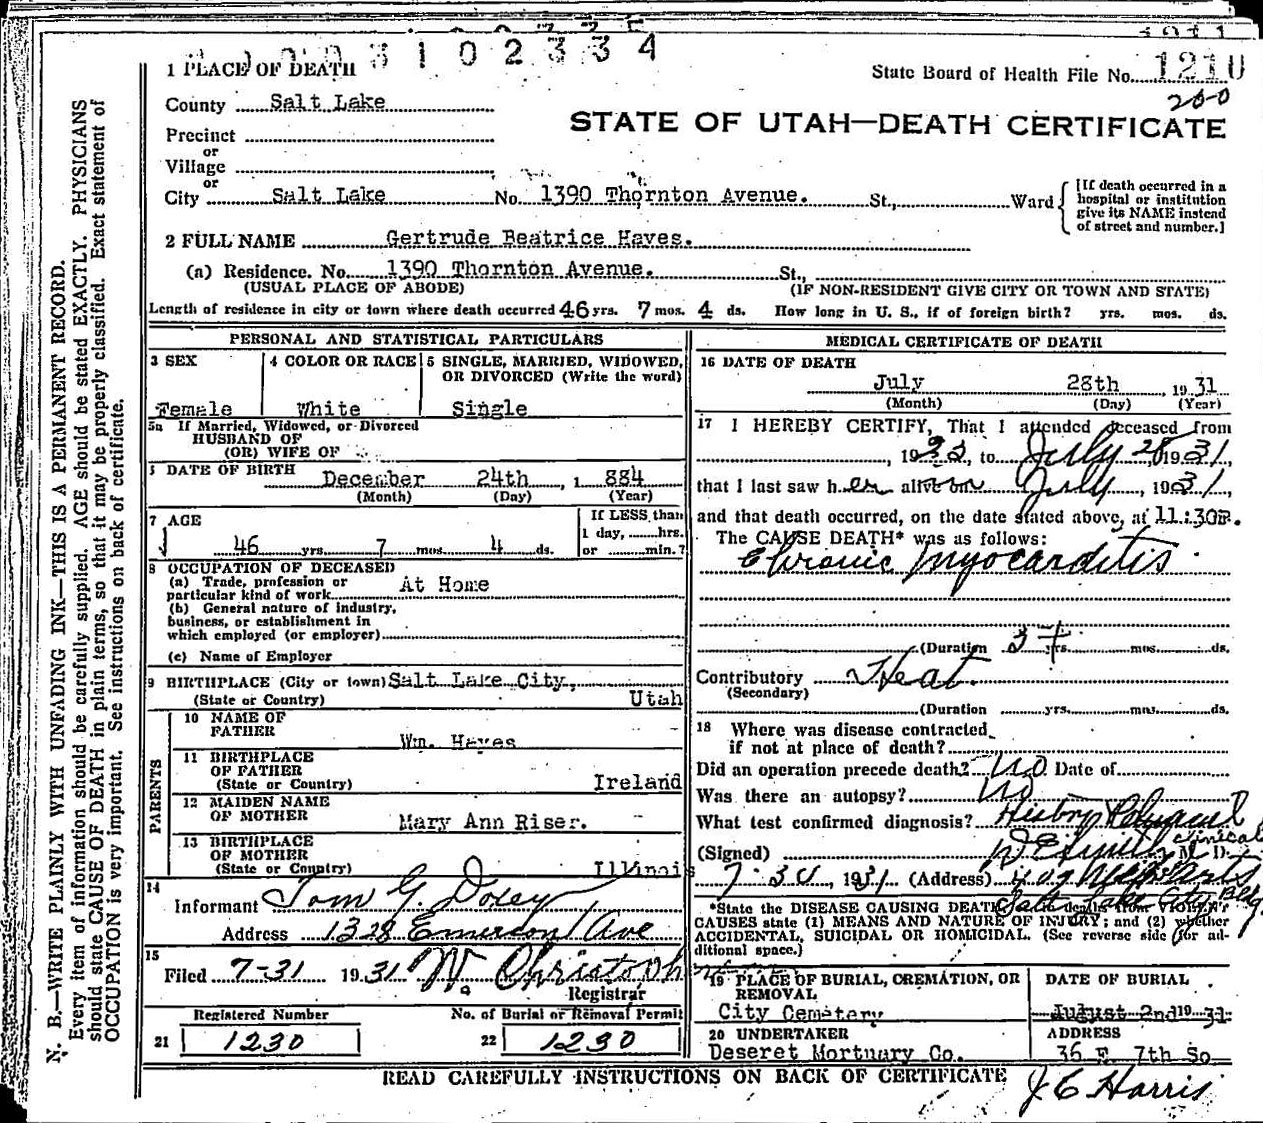 3 1 0 2 3 3 4
1 PLACE OF DEATH
State Board of Health File No. 1210
200
County Salt Lake
STATE OF UTAH—DEATH CERTIFICATE
Precinct
or
Village
or
City Salt Lake No. 1390 Thornton Avenue. St., Ward
[If death occurred in a hospital or institution give its NAME instead of street and number.]
2 FULL NAME Gertrude Beatrice Hayes.
(a) Residence. No. 1390 Thornton Avenue. St.,
(USUAL PLACE OF ABODE) (IF NON-RESIDENT GIVE CITY OR TOWN AND STATE)
Length of residence in city or town where death occurred 46 yrs. 7 mos. 4 ds. How long in U. S., if of foreign birth? yrs. mos. ds.
PERSONAL AND STATISTICAL PARTICULARS
3 SEX
Female
4 COLOR OR RACE
White
5 SINGLE, MARRIED, WIDOWED, OR DIVORCED (Write the word)
Single
5a If Married, Widowed, or Divorced
HUSBAND OF
(OR) WIFE OF
DATE OF BIRTH December 24th, 1884
(Month) (Day) (Year)
7 AGE
46 yrs. 7 mos. 4 ds.
If LESS than
1 day, hrs.
or min.?
8 OCCUPATION OF DECEASED
(a) Trade, profession or
particular kind of work At Home
(b) General nature of industry,
business, or establishment in
which employed (or employer)
(c) Name of Employer
9 BIRTHPLACE (City or town) Salt Lake City,
(State or Country) Utah
PARENTS
10 NAME OF
FATHER Wm. Hayes
11 BIRTHPLACE
OF FATHER
(State or Country) Ireland
12 MAIDEN NAME
OF MOTHER Mary Ann Riser.
13 BIRTHPLACE
OF MOTHER
(State or Country) Illinois
14
Informant Tom G. Doxey
Address 1328 Emerson Ave
15
Filed 7-31 1931 W. Christoph
Registrar
Registered Number
21 1230
No. of Burial or Removal Permit
22 1230
MEDICAL CERTIFICATE OF DEATH
16 DATE OF DEATH
July 28th, 1931
(Month) (Day) (Year)
17 I HEREBY CERTIFY, That I attended deceased from
, 19 , to July 28 1931,
that I last saw her alive on July , 1931,
and that death occurred, on the date stated above, at 11:30P.
The CAUSE DEATH* was as follows:
Chronic myocarditis
(Duration 3+ yrs. mos. ds.
Contributory Heat.
(Secondary)
(Duration yrs. mos. ds.
18 Where was disease contracted
if not at place of death?
Did an operation precede death? No. Date of
Was there an autopsy? No
What test confirmed diagnosis? History Physical
Clinical
(Signed) M. D.
7-30, 1931 (Address) 409 Arts Bldg.
Salt Lake City
*State the DISEASE CAUSING DEATH, deaths from VIOLENT
CAUSES state (1) MEANS AND NATURE OF INJURY; and (2) whether
ACCIDENTAL, SUICIDAL OR HOMICIDAL. (See reverse side for ad-
ditional space.)
19 PLACE OF BURIAL, CREMATION, OR
REMOVAL
City Cemetery
DATE OF BURIAL
August 2nd 19 31
20 UNDERTAKER
Deseret Mortuary Co.
ADDRESS
36 E. 7th So.
READ CAREFULLY INSTRUCTIONS ON BACK OF CERTIFICATE
J C Harris
N. B.—WRITE PLAINLY WITH UNFADING INK—THIS IS A PERMANENT RECORD.
Every item of information should be carefully supplied. AGE should be stated EXACTLY. PHYSICIANS
should state CAUSE OF DEATH in plain terms, so that it may be properly classified. Exact statement of
OCCUPATION is very important. See instructions on back of certificate.